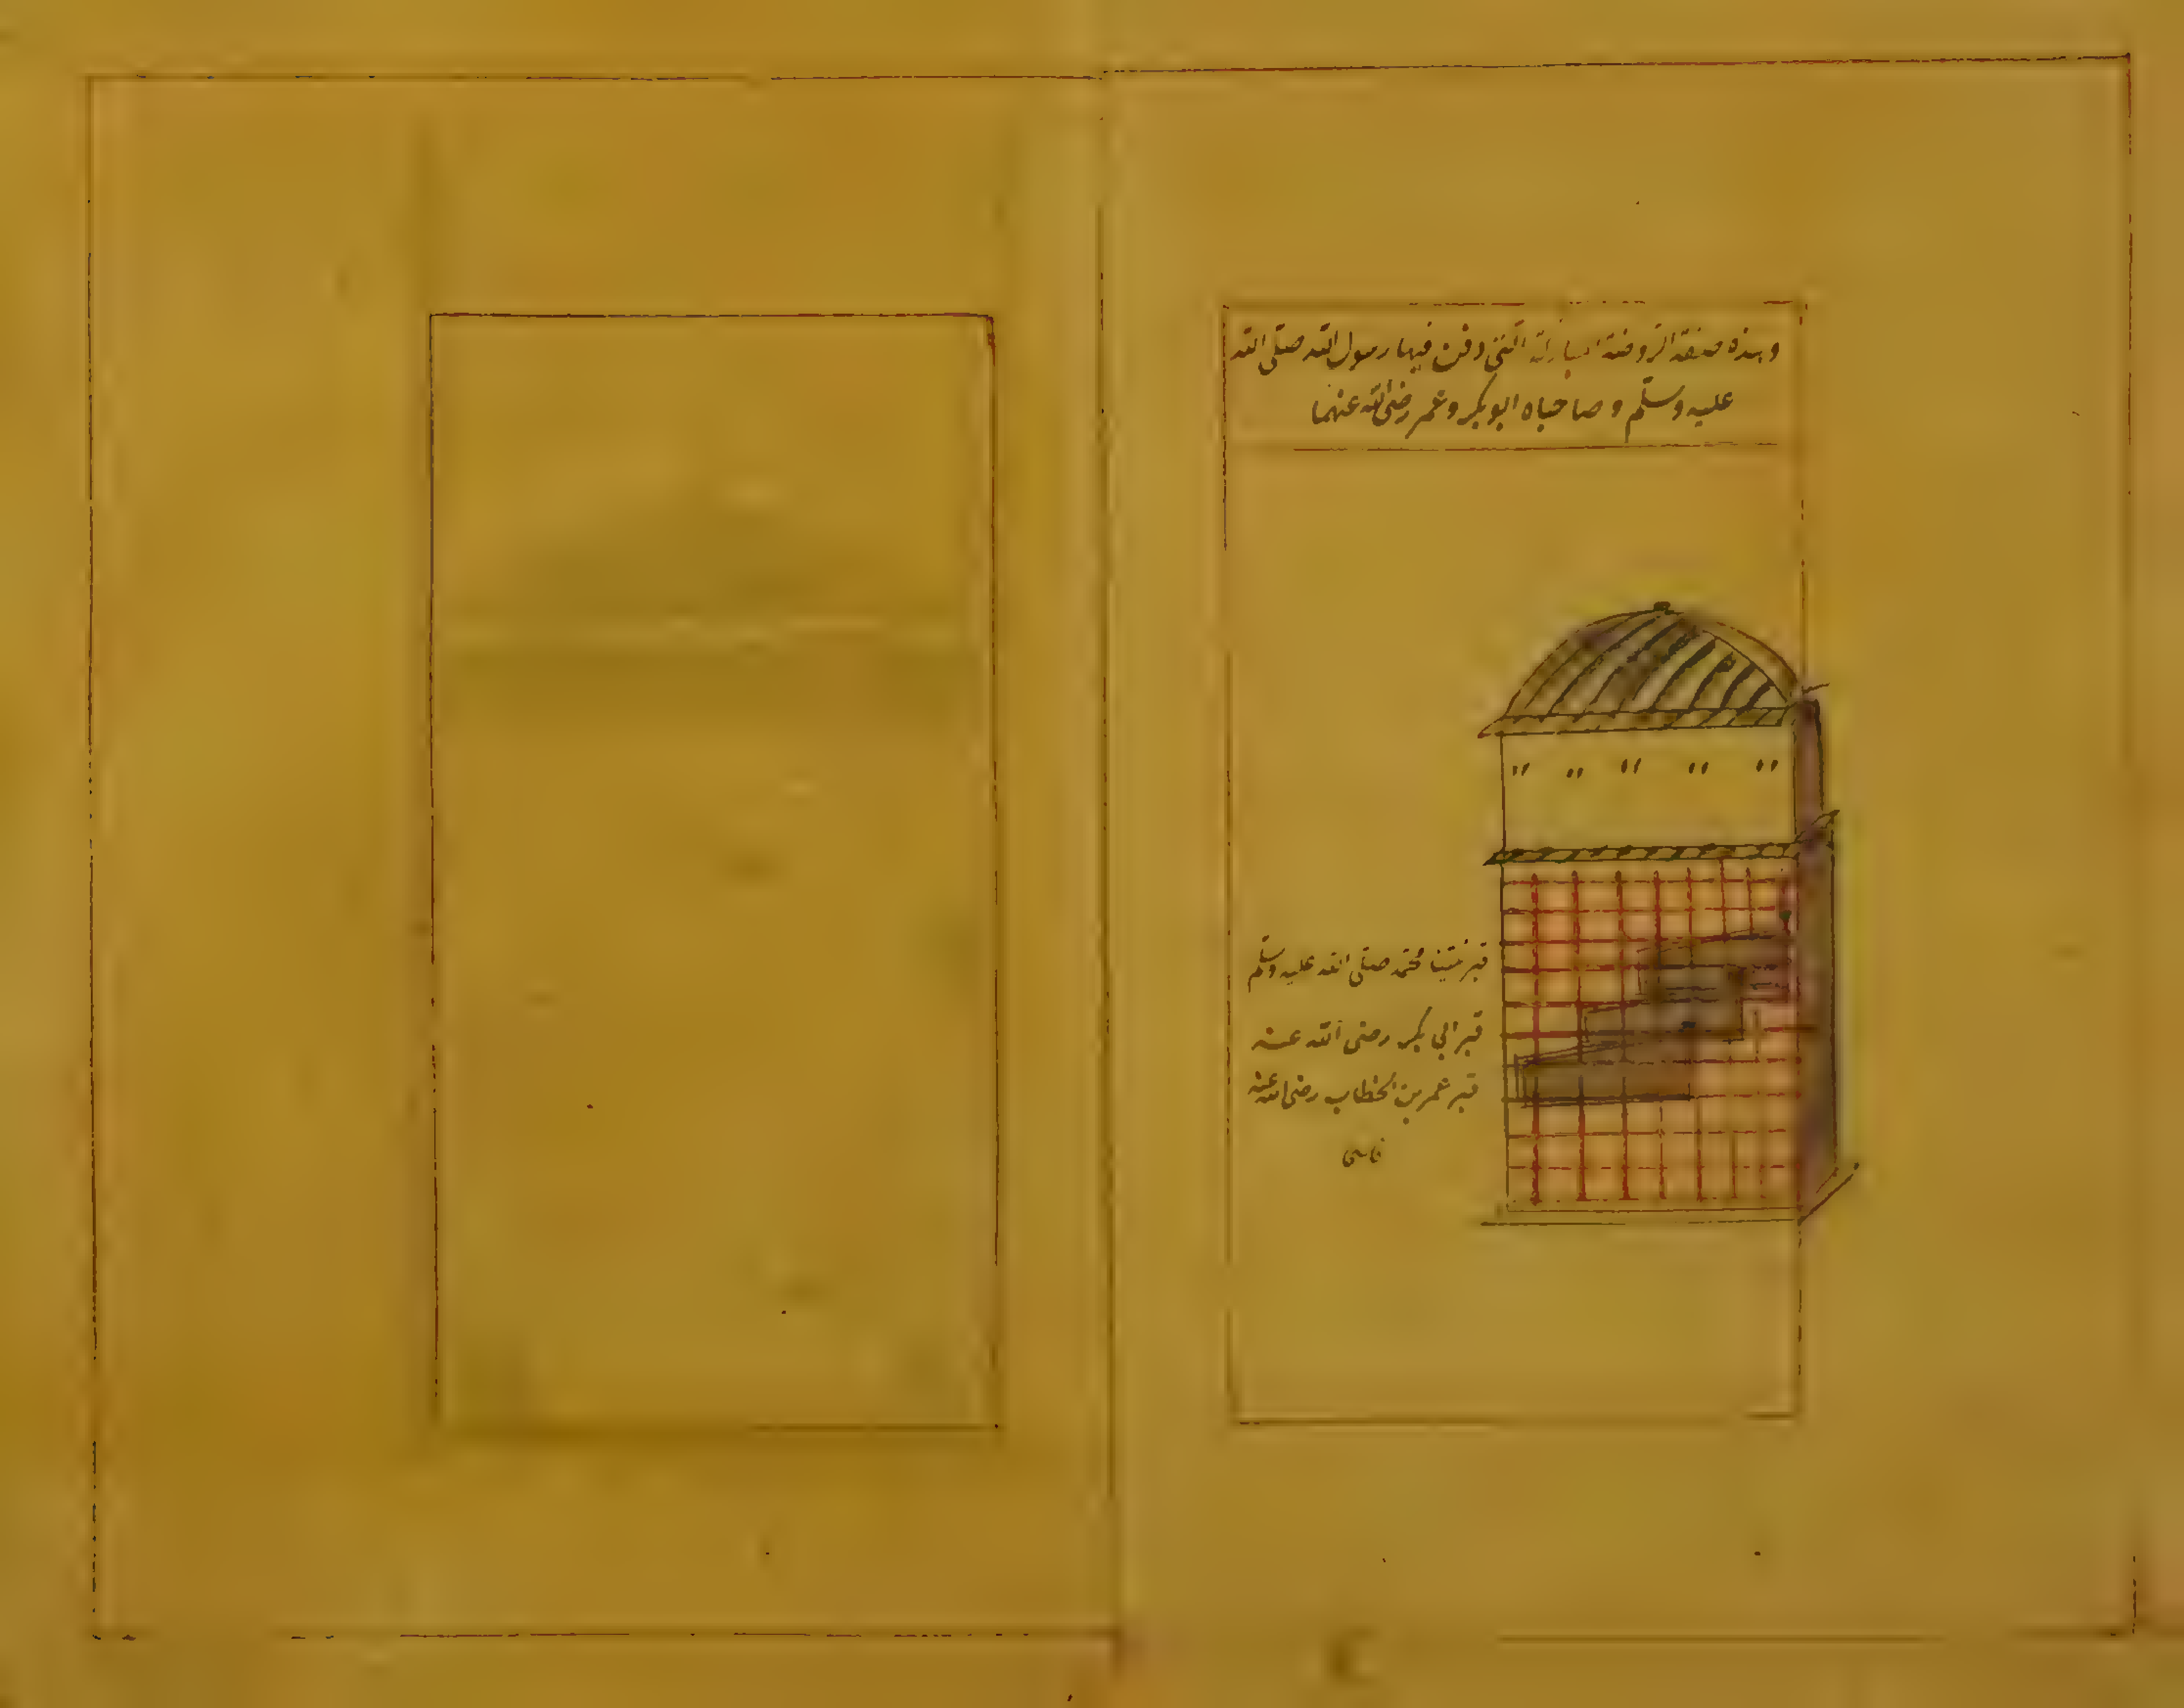 وهذه صفة الروضة المباركة التي دفن فيها رسول الله صلى الله
عليه وسلم وصاحباه ابو بكر وعمر رضى الله عنهما
قبر نبينا محمد صلى الله عليه وسلم
قبر ابي بكر رضى الله عنه
قبر عمر بن الخطاب رضى الله عنه